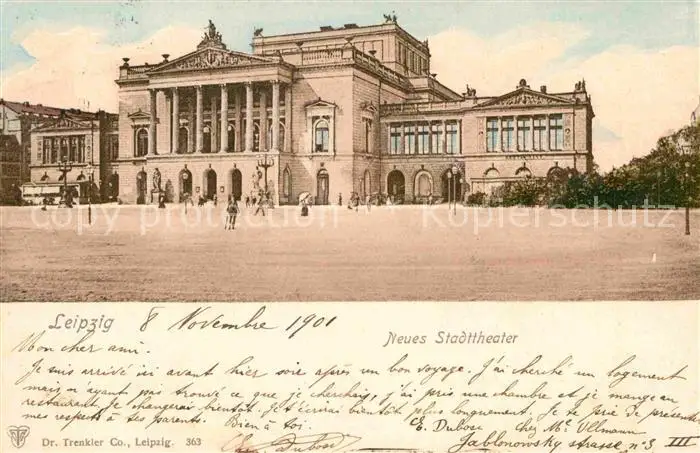 © Copyright Kopierschutz Copyright Kopierschutz
Leipzig 8 Novembre 1901
Neues Stadttheater
Mon cher ami.
Je suis arrivé ici avant hier soir après un bon voyage. J'ai cherché un logement
mais n'ayant pas trouvé ce que je cherchais, j'ai pris une chambre et je mange au
restaurant, je changerais bientôt. Je t'écrirai bientôt plus longuement. Je te prie de présenter
mes respects à tes parents. Bien à toi. E. Dubosc chez Mr. Ullmann
E. Dubosc Jablonowsky strasse no 3 III
Dr. Trenkler Co., Leipzig. 363